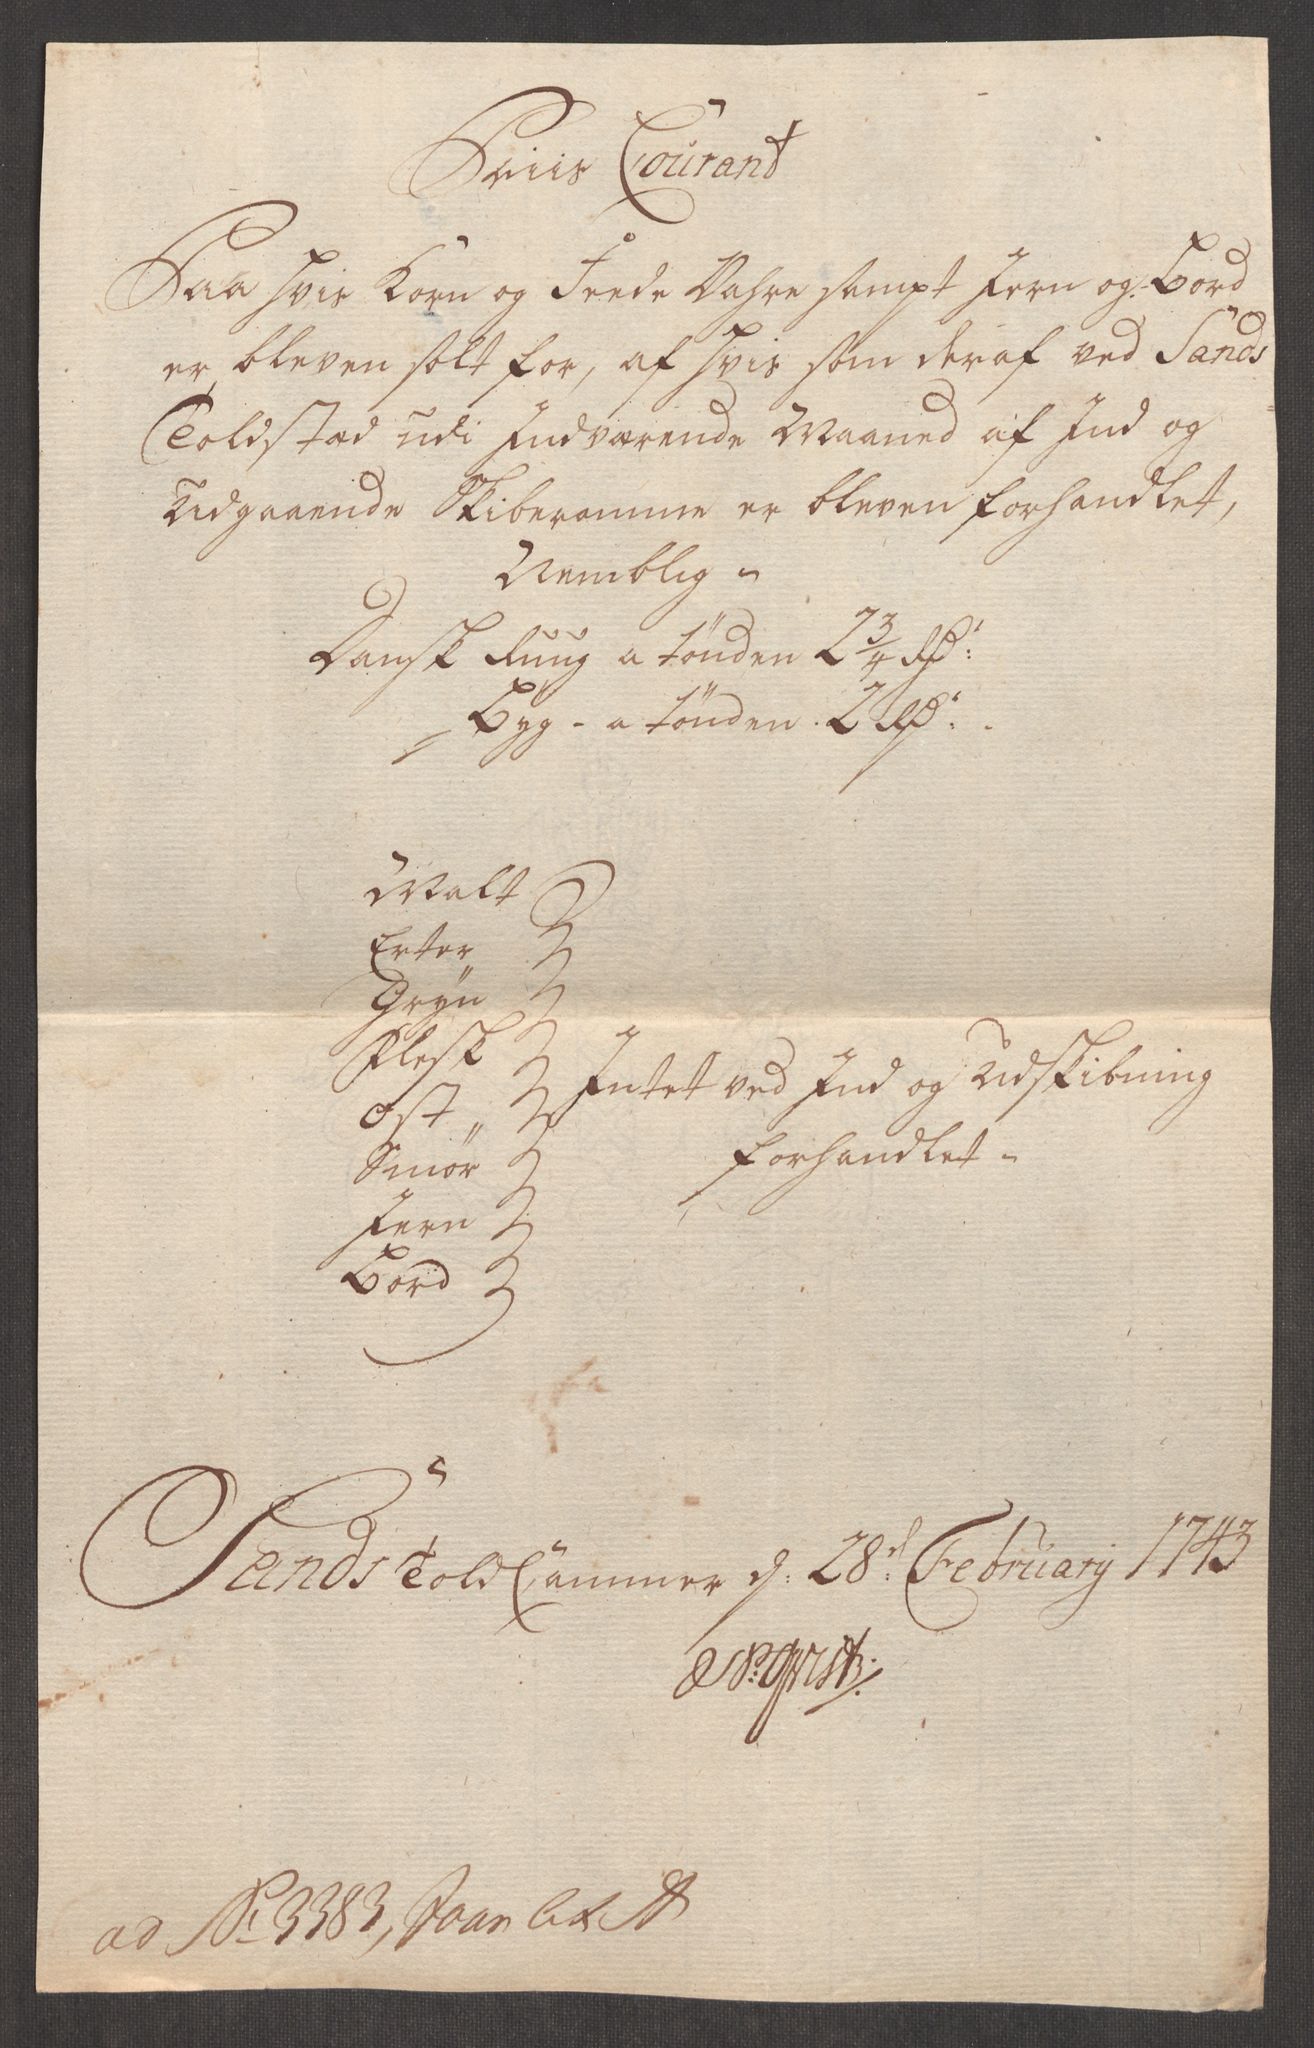 Priis Courant
Paa hvis Korn og Feede Vahre sampt Jern og Bord
er bleven solt for, af hvis som deraf ved Sands
Toldsted udi Indværende Maaned af Ind og
Udgaaende Skiberomme er bleven forhandlet,
Nemblig
Dansk Ruug a tönden 2 3/4 Rd:
Byg - a tönden 2 Rd:
Malt
Erter
Gryn
Flesk
Ost „
Smør
Jern
Bord
Intet ved Ind og Udskibning
forhandlet
Sands Told Cammer d: 28d: February 1743
ad No 3383,